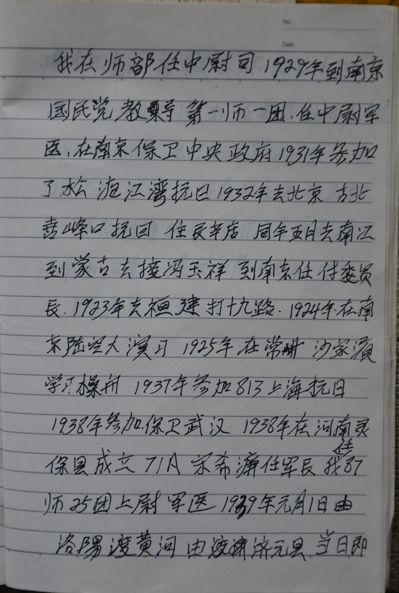 No.
Date
我在师部任中尉司 1929年到南京
国民党教导第一师一团.任中尉军
医,在南京保卫中央政府1931年参加
了江湾抗日1932年去北京 古北
喜峰口抗日 住长辛店 同年五月去南江
到蒙古去接冯玉祥 到南京任付委员
长.1923年去 建打十九路.1924年在南
京陆空大演习 1925年在常 沙家浜
学习操舟 1937年参加813上海抗日
1938年参加保卫武汉 1938年在河南灵
保县成立71A 宋希濂任军长 我任87
师25团上尉军医 1939年元月1日由
洛陽渡黄河 由 济元县 当日即